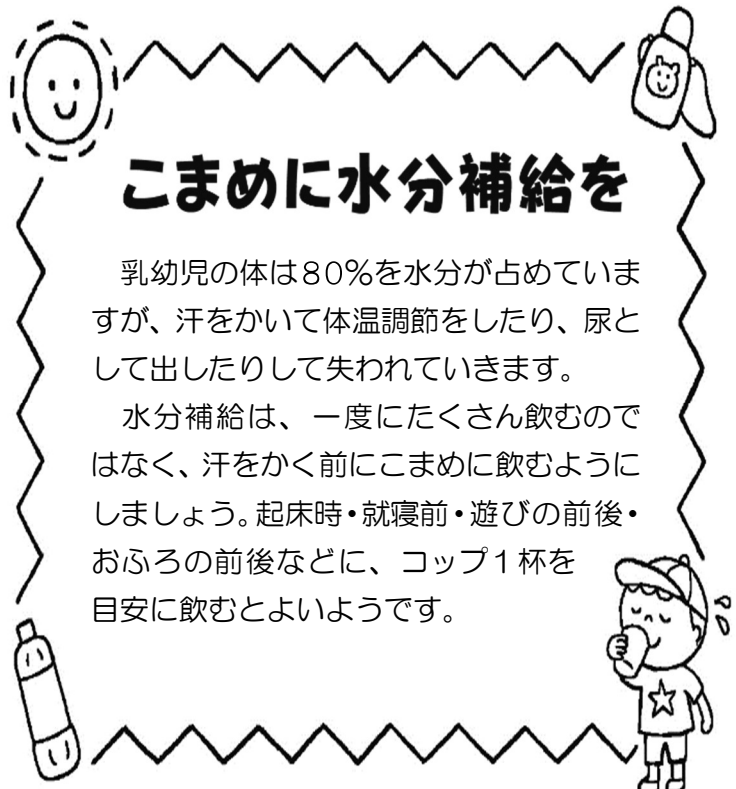 こまめに水分補給を
　乳幼児の体は８０％を水分が占めていま
すが、汗をかいて体温調節をしたり、尿と
して出したりして失われていきます。
　水分補給は、一度にたくさん飲むので
はなく、汗をかく前にこまめに飲むように
しましょう。起床時・就寝前・遊びの前後・
おふろの前後などに、コップ１杯を
目安に飲むとよいようです。